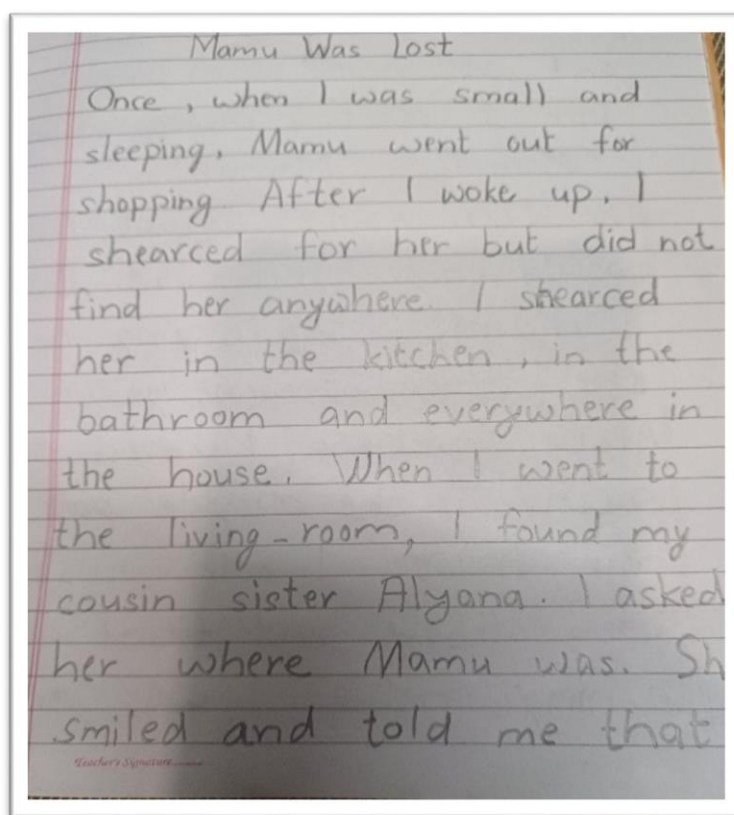 Mamu Was Lost
Once, when I was small and
sleeping, Mamu went out for
shopping After I woke up. I
shearced for her but did not
find her anywhere. I shearced
her in the kitchen, in the
bathroom and everywhere in
the house. When I went to
the living-room, I found my
cousin sister Alyana. I asked
her where Mamu was. Sh
smiled and told me that
Teacher's Signature